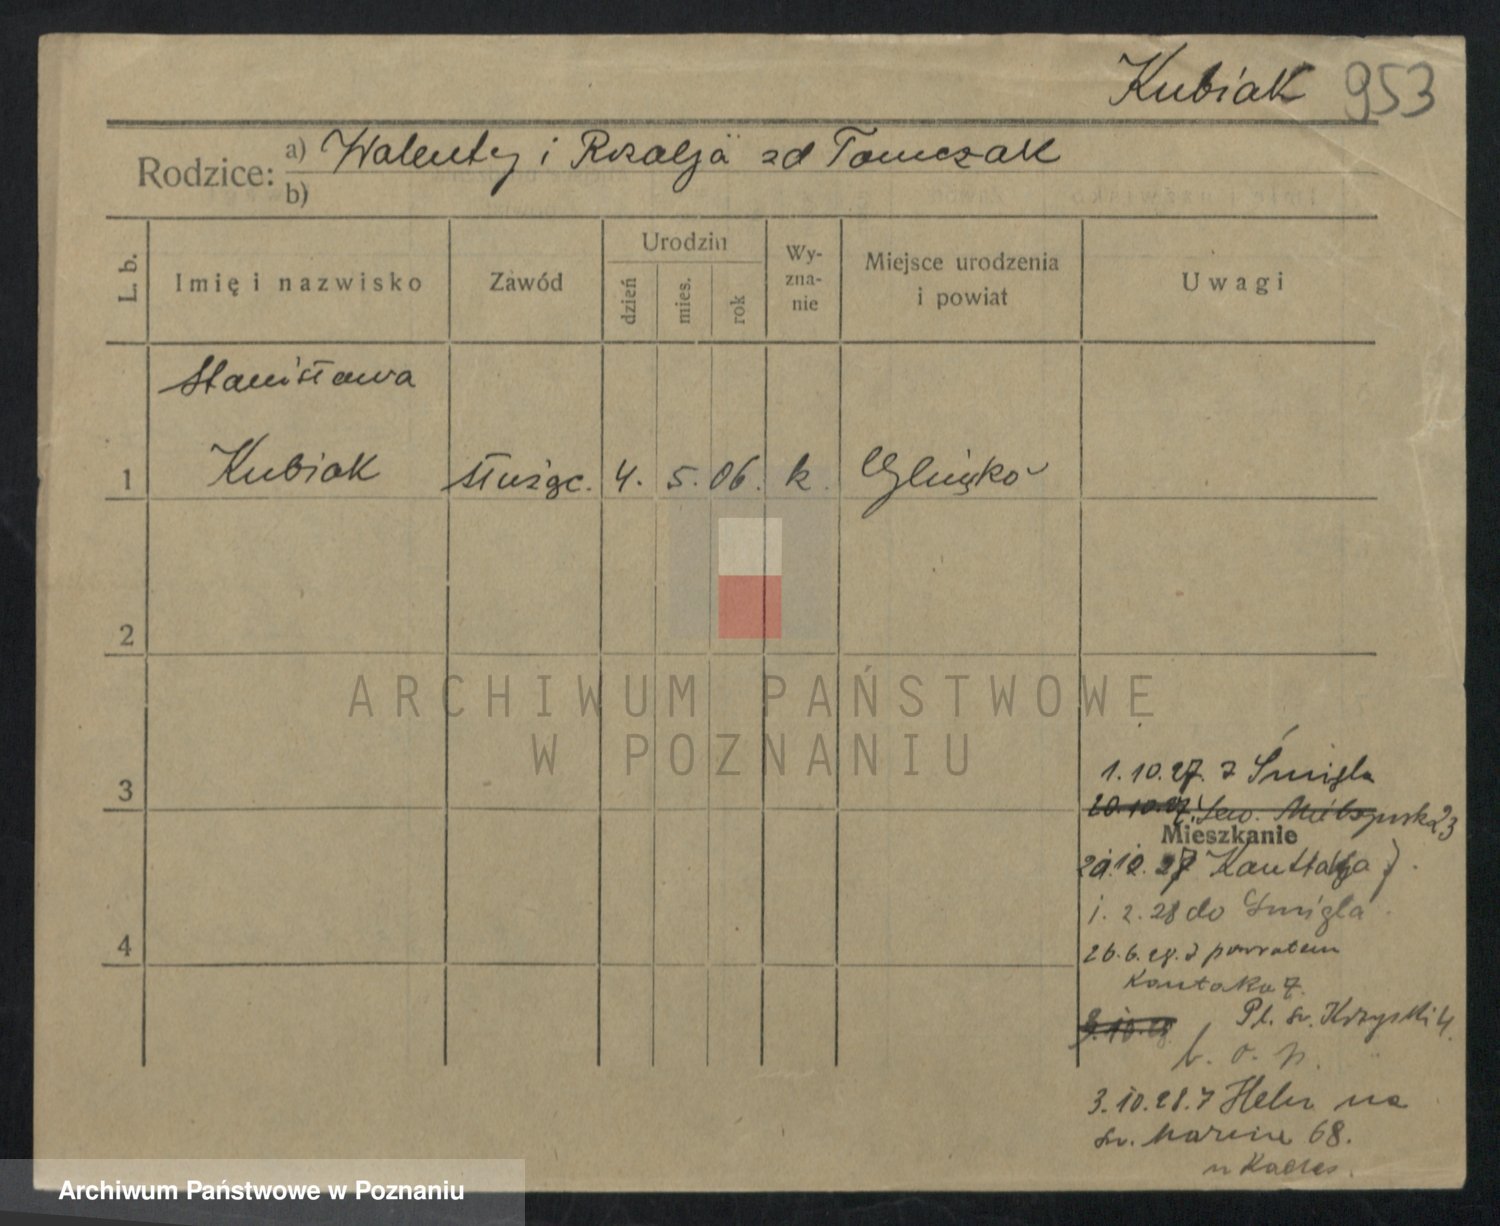 Kubiak 953
Rodzice: a) Walenty i Rozalja zd Tomczak
b)
L. b.
Imię i nazwisko
Zawód
Urodzin
dzień
mies.
rok
Wy-
zna-
nie
Miejsce urodzenia
i powiat
Uwagi
Stanisława
1 Kubiak służąc. 4. 5. 06. k.
2
ARCHIWUM PAŃSTWOWE
W POZNANIU
3
1.10.27. z Śmigla
20.10.27.
Mieszkanie
Kantaka 7
1. 2. 28 do Śmigla
26.6.28. z powrotem
4
Kantaka 7.
Pl. Św. Krzyski 4.
b. o. p.
3.10.28. na
św. Marcin 68.
Archiwum Państwowe w Poznaniu